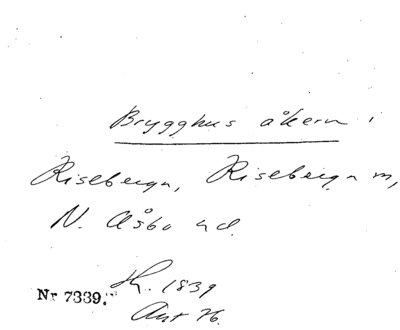 Brygghus åkern i
Riseberga, Riseberga m,
N. Åsbo hd.
Sk. 1839
Nr 7339. Ant 76.